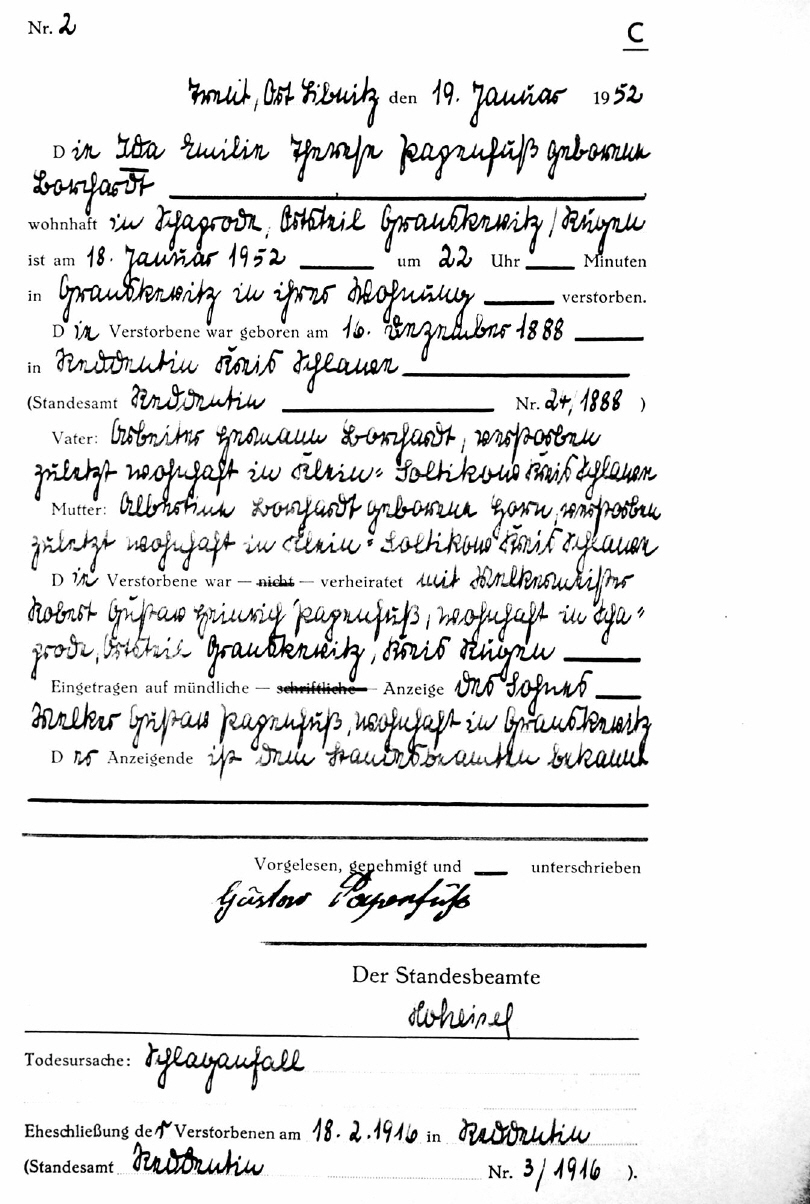 Nr. 2
C
Trent, Ort Libnitz den 19. Januar 1952
Die Ida Emilie Therese Papenfuß geborene
Borchardt
wohnhaft in Schaprode, Ortsteil Granskewitz / Rügen
ist am 18. Januar 1952 um 22 Uhr Minuten
in Granskewitz in ihrer Wohnung verstorben.
Die Verstorbene war geboren am 16. Dezember 1888
in Reddentin Kreis Schlawe
(Standesamt Reddentin Nr. 24/1888 )
Vater: Arbeiter Hermann Borchardt, verstorben
zuletzt wohnhaft in Klein-Soltikow Kreis Schlawe
Mutter: Albertine Borchardt geborene Horn, verstorben
zuletzt wohnhaft in Klein-Soltikow Kreis Schlawe
Die Verstorbene war — nicht — verheiratet mit Melkermeister
Robert Gustav Heinrich Papenfuß, wohnhaft in Scha-
prode, Ortsteil Granskewitz, Kreis Rügen
Eingetragen auf mündliche — schriftliche — Anzeige des Sohnes
Melker Gustav Papenfuß, wohnhaft in Granskewitz
Der Anzeigende ist dem Standesbeamten bekannt
Vorgelesen, genehmigt und unterschrieben
Gustav Papenfuß
Der Standesbeamte
Hoheisel
Todesursache: Schlaganfall
Eheschließung der Verstorbenen am 18.2.1916 in Reddentin
(Standesamt Reddentin Nr. 3/1916 ).